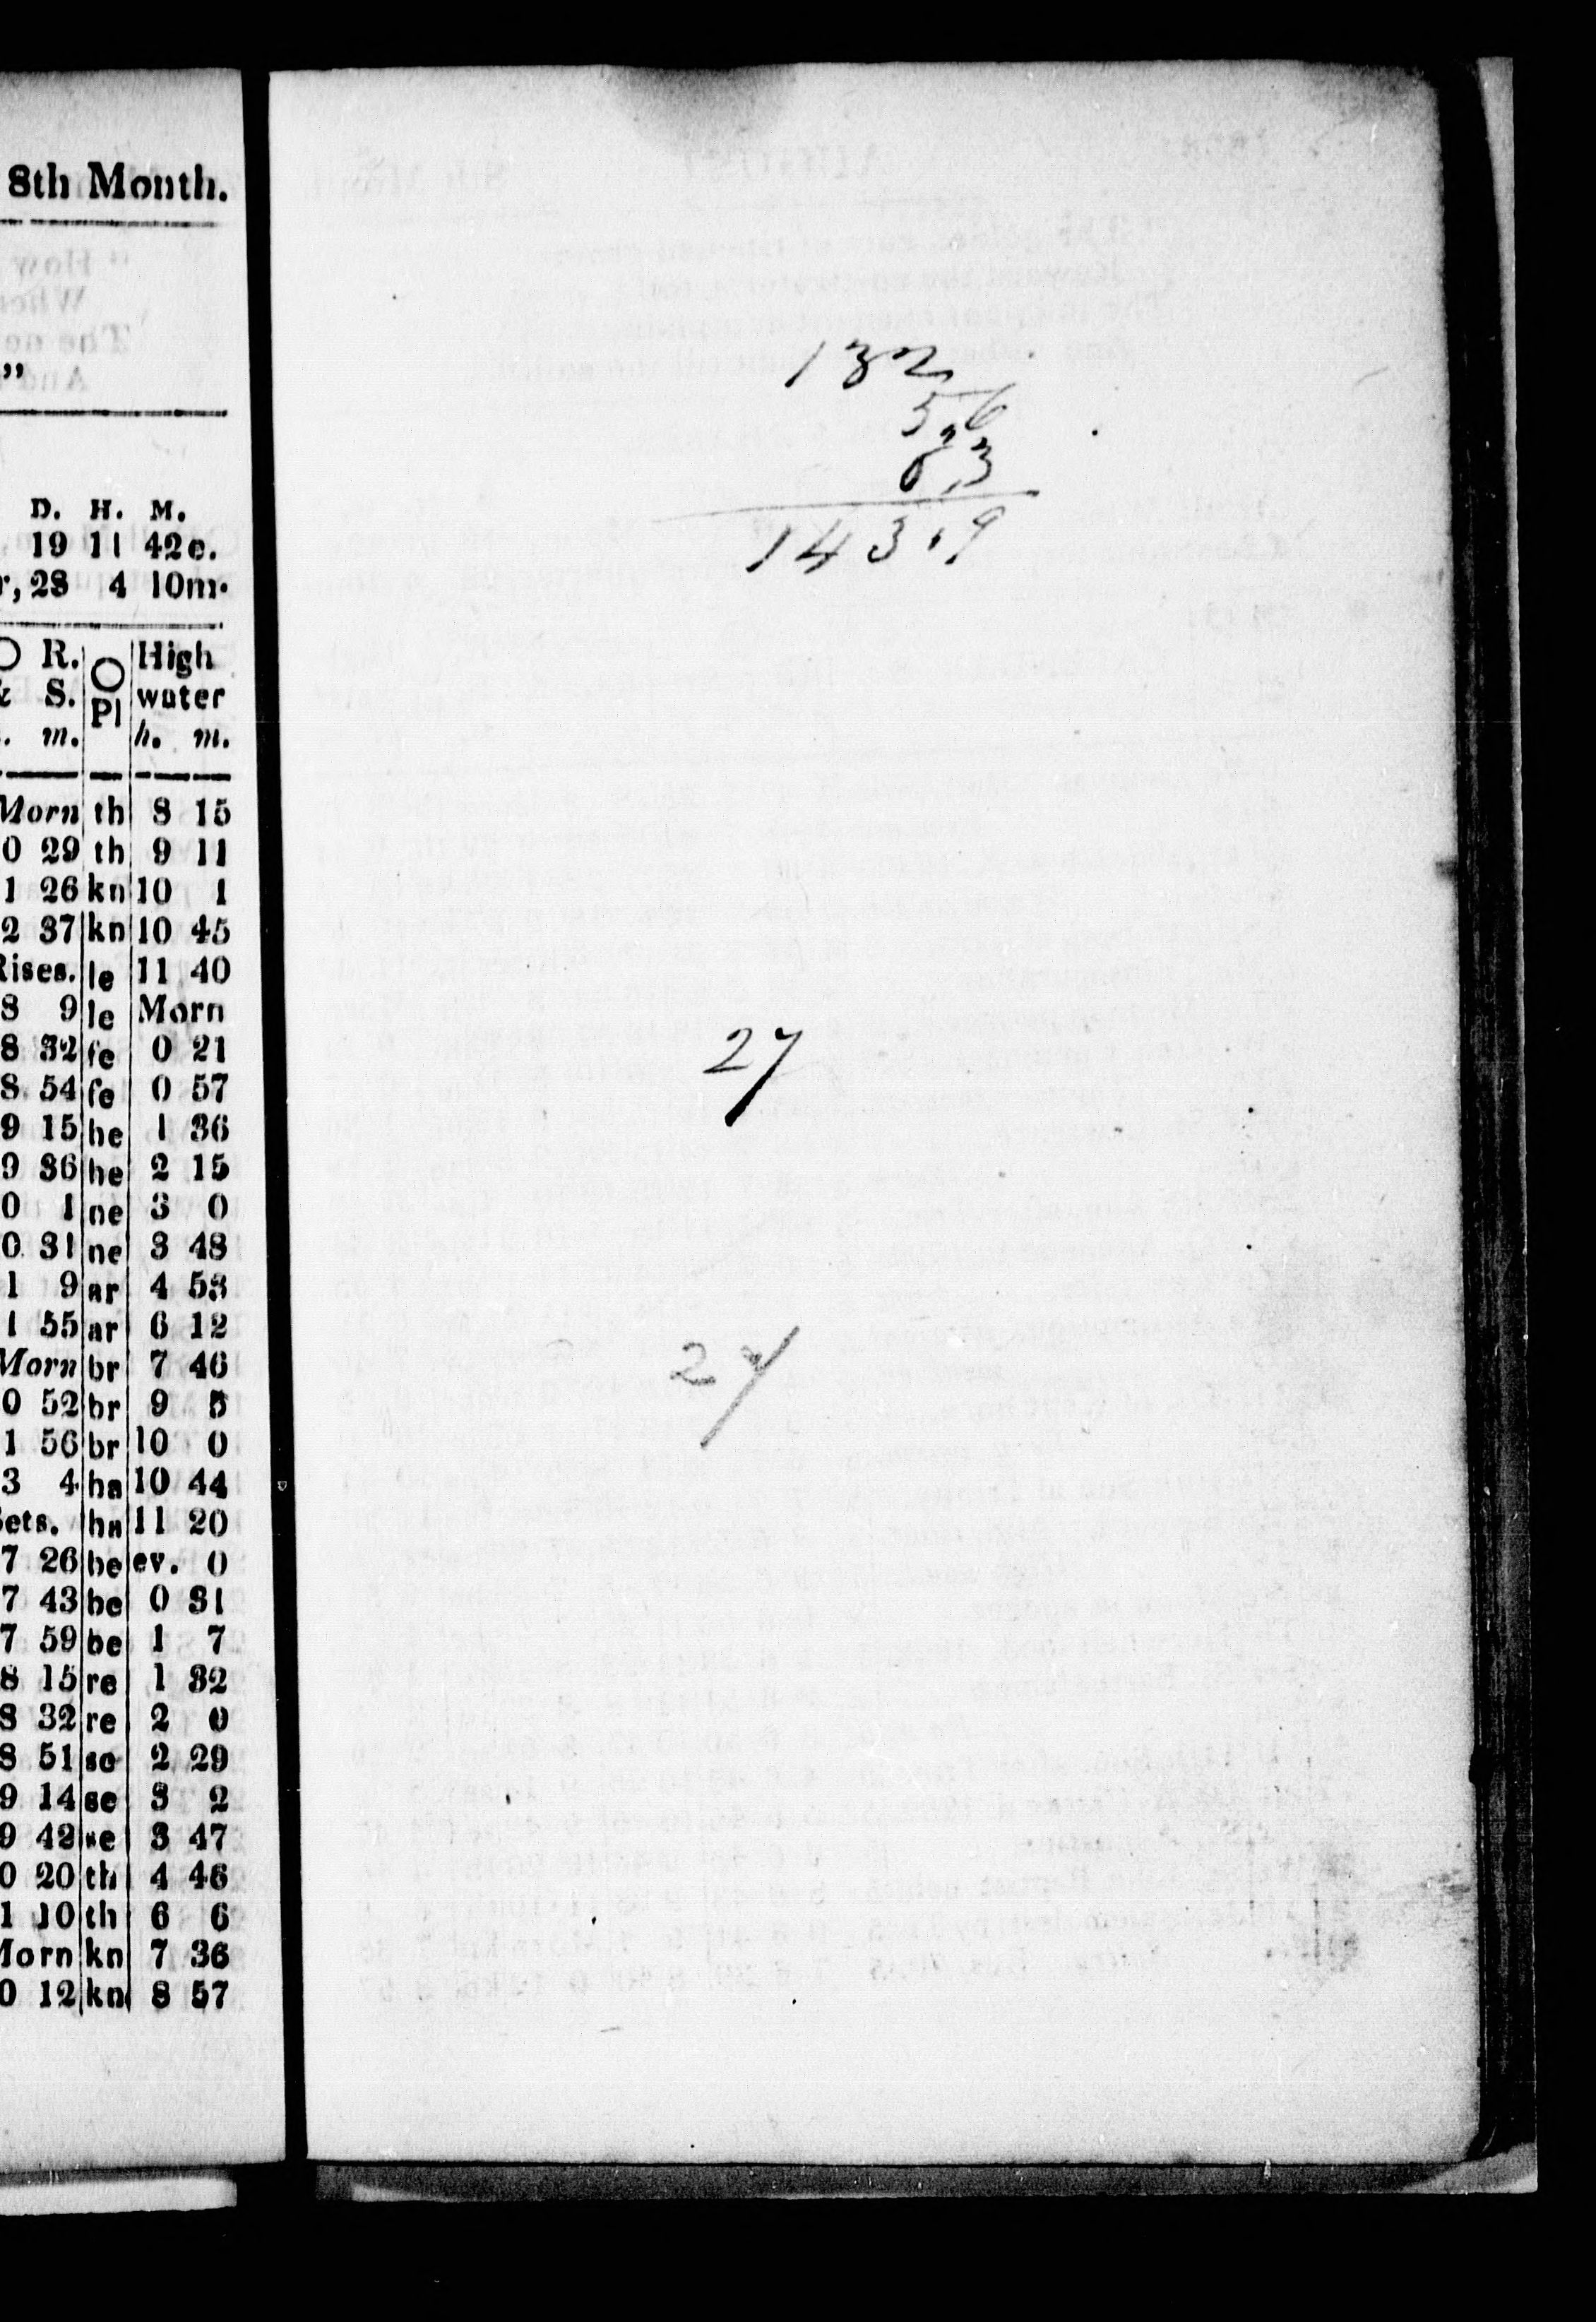 8th Month.
"
D. H. M.
19 11 42e.
r, 28 4 10m.
R. High
& S. Pl water
m. h. m.
Morn th 8 15
0 29 th 9 11
1 26 kn 10 1
2 37 kn 10 45
Rises. le 11 40
8 9 le Morn
8 32 fe 0 21
8 54 fe 0 57
9 15 he 1 36
9 36 he 2 15
0 1 ne 3 0
0 31 ne 3 48
1 9 ar 4 53
1 55 ar 6 12
Morn br 7 46
0 52 br 9 5
1 56 br 10 0
3 4 ha 10 44
Sets. ha 11 20
7 26 be ev. 0
7 43 be 0 31
7 59 be 1 7
8 15 re 1 32
8 32 re 2 0
8 51 se 2 29
9 14 se 3 2
9 42 se 3 47
0 20 th 4 46
1 10 th 6 6
Morn kn 7 36
0 12 kn 8 57
132
5,6
6,3
143,9
27
27